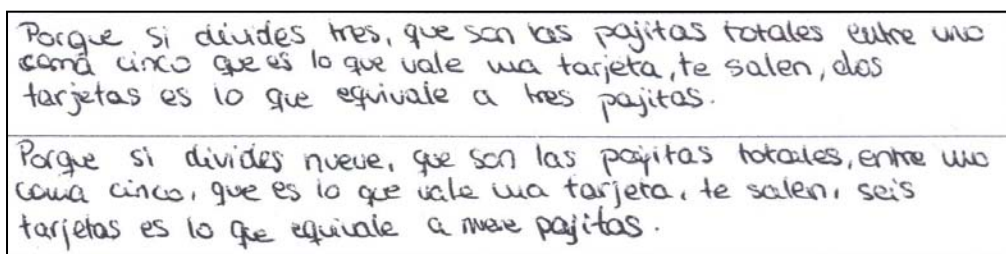 Porque si divides tres, que son las pajitas totales entre uno
coma cinco que es lo que vale una tarjeta, te salen, dos
tarjetas es lo que equivale a tres pajitas.
Porque si divides nueve, que son las pajitas totales, entre uno
coma cinco, que es lo que vale una tarjeta, te salen, seis
tarjetas es lo que equivale a nueve pajitas.